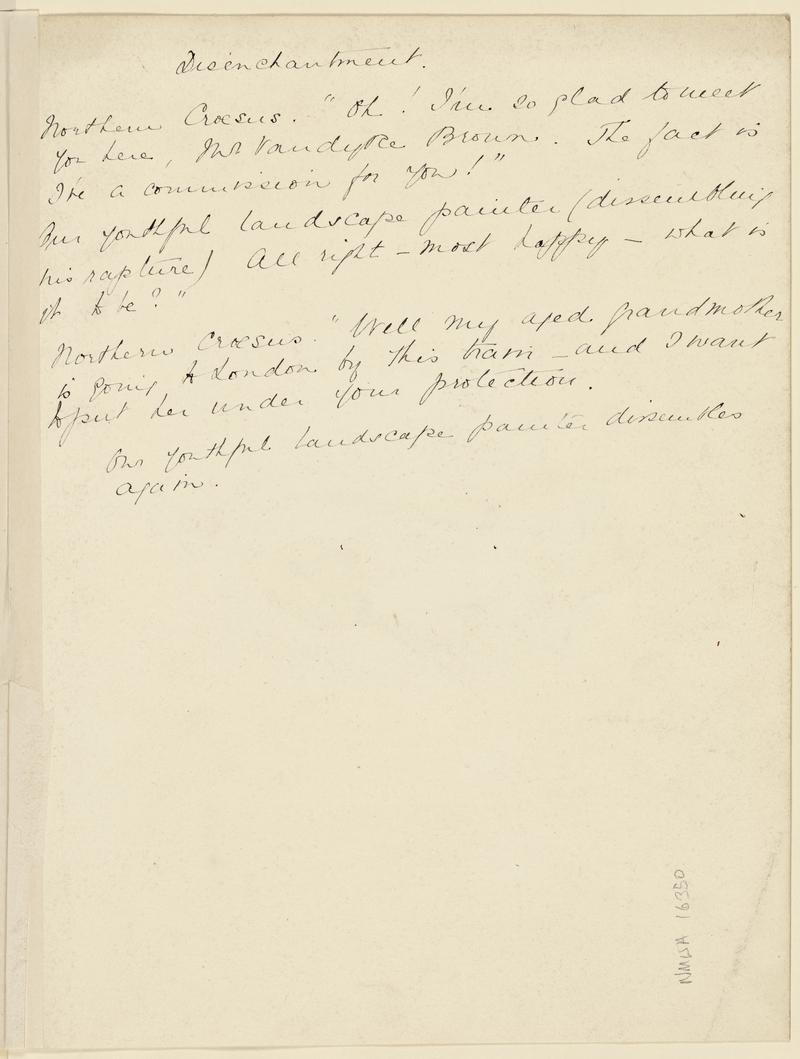 Disenchantment.
Northern Crœsus. "Oh! I'm so glad to meet
you here, Mr Vandyke Brown. The fact is
I've a commission for you!"
Our youthful landscape painter (dissembling
his rapture) All right – most happy – what is
it to be?"
Northern Crœsus. "Well my aged grandmother
is going to London by this train – and I want
to put her under your protection.
Our youthful landscape painter dissembles
again.
NMWA 16350